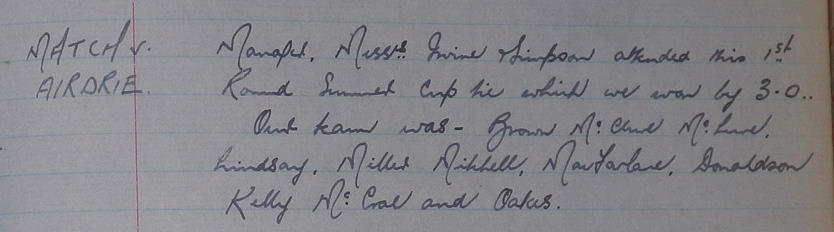 MATCH v. Manager, Messrs Irvine & Simpson attended this 1st
AIRDRIE. Round Summer Cup tie which we won by 3-0..
Our team was - Brown Mc Clure Mc Lure,
Lindsay, Miller Mitchell, MacFarlane, Donaldson
Kelly Mc Crae and Oakes.